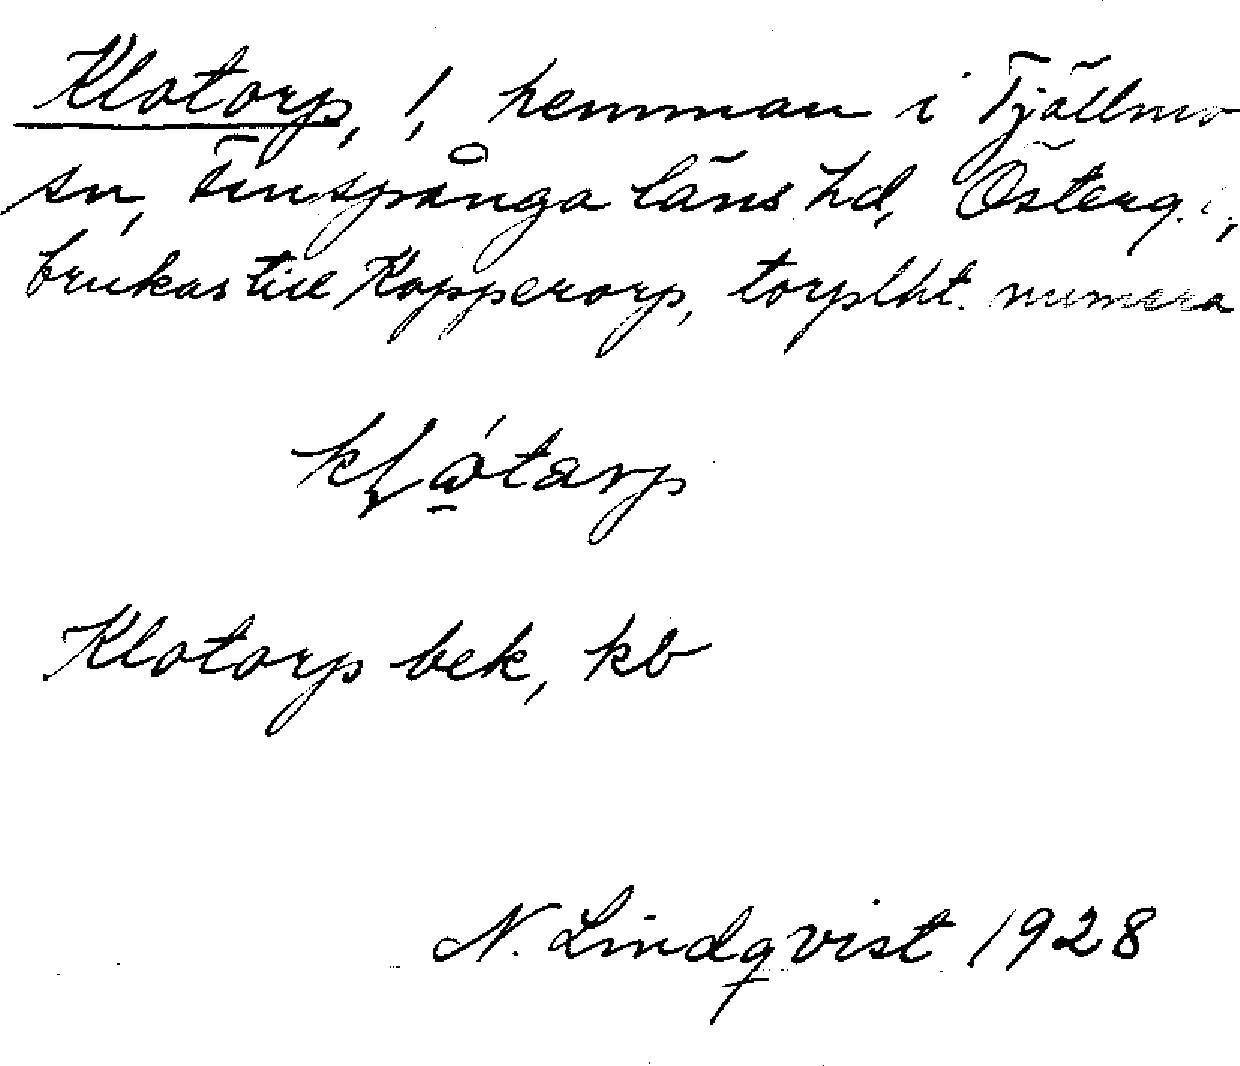 Klotorp, 1, hemman i Tjällmo
sn, Finspånga läns hd, Österg. l.,
brukas till Kopperorp, torplht. numera
Klotorp bek, kb
N. Lindqvist 1928